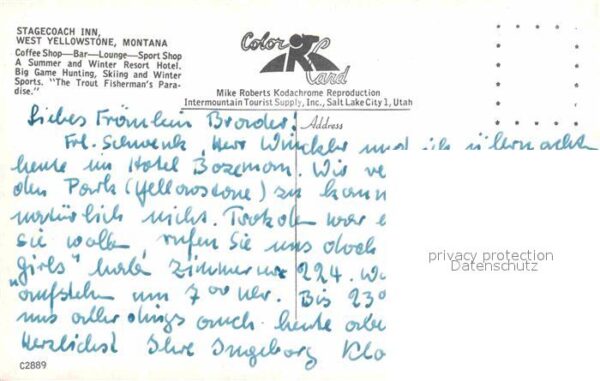 STAGECOACH INN,
WEST YELLOWSTONE, MONTANA
Coffee Shop—Bar—Lounge—Sport Shop
A Summer and Winter Resort Hotel.
Big Game Hunting, Skiing and Winter
Sports. "The Trout Fisherman's Para-
dise."
Color Kard
Mike Roberts Kodachrome Reproduction
Intermountain Tourist Supply, Inc., Salt Lake City 1, Utah
Address
Liebes Fräulein Broeder!
Frl. Schwenk, Herr Winckler und ich übernachten
heute im Hotel Bozeman. Wir
den Park (Yellowstone) zu
natürlich nicht. Trotzdem war
Sie wollen, rufen Sie uns doch
girls" haben Zimmer 224.
"aufstehen um 7 00 Uhr. Bis 23
uns allerdings auch heute
Herzlichst Ihre Ingeborg
privacy protection
Datenschutz
C2889